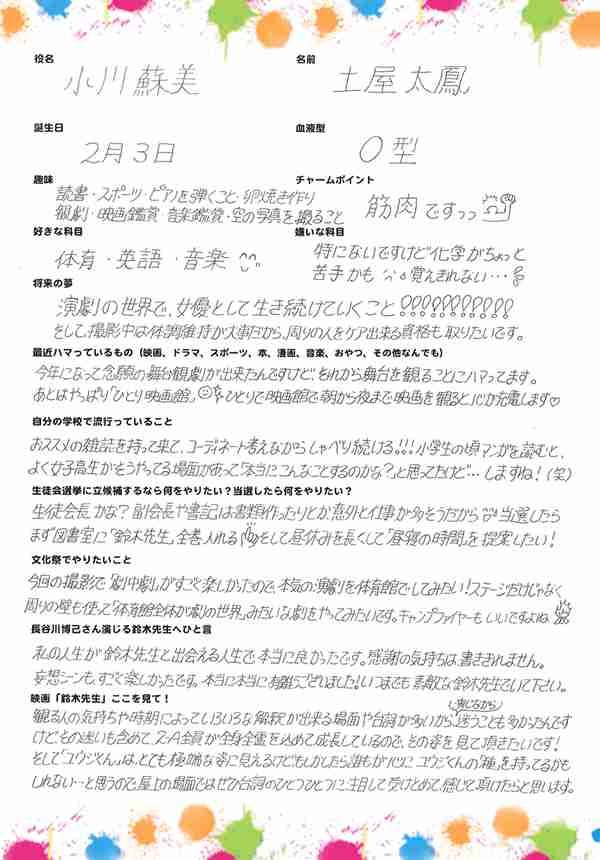 役名
小川 蘇美
名前
土屋 太鳳
誕生日
2月3日
血液型
O型
趣味
読書・スポーツ・ピアノを弾くこと・卵焼き作り
観劇・映画鑑賞・音楽鑑賞・空の写真を撮ること
チャームポイント
筋肉ですっっ
好きな科目
体育・英語・音楽
嫌いな科目
特にないですけど化学がちょっと
苦手かも 覚えきれない…
将来の夢
演劇の世界で、女優として生き続けていくこと!!!!!!!!!!!
そして、撮影中は体調維持が大事だから、周りの人をケア出来る資格も取りたいです。
最近ハマっているもの(映画、ドラマ、スポーツ、本、漫画、音楽、おやつ、その他なんでも)
今年になって念願の舞台観劇が出来たんですけど、それから舞台を観ることにハマってます。
あとはやっぱり「ひとり映画館」 ひとりで映画館で朝から夜まで映画を観ると、心が充電します♡
自分の学校で流行っていること
おススメの雑誌を持って来て、コーディネート考えながらしゃべり続ける!!!小学生の頃マンガを読むと、
よく女子高生がそうやってる場面があって「本当にこんなことするのかな?」と思ってたけど…しますね!(笑)
生徒会選挙に立候補するなら何をやりたい?当選したら何をやりたい?
生徒会長かな?副会長や書記は書類作ったりとか意外と仕事が多そうだから 当選したら
まず図書室に「鈴木先生」全巻入れる そして昼休みを長くして「昼寝の時間」を提案したい!
文化祭でやりたいこと
今回の撮影で「劇中劇」がすごく楽しかったので、本気の演劇を体育館でしてみたい!ステージだけじゃなく
周りの壁も使って「体育館全体が劇の世界」みたいな劇をやってみたいです。キャンプファイヤーもいいですよね
長谷川博己さん演じる鈴木先生へひと言
私の人生が鈴木先生と出会える人生で、本当に良かったです。感謝の気持ちは書ききれません。
妄想シーンも、すごく楽しかったです。本当に本当に有難うございました!いつまでも素敵な鈴木先生でいて下さい。
映画「鈴木先生」ここを見て!
観る人の気持ちや時期によっていろいろな解釈が出来る場面や台詞が多いから、演じながら迷うことも多かったんです
けど、その迷いも含めて、2-A全員が全身全霊を込めて成長しているので、その姿を見て頂きたいです!
そして「ユウジくん」は、とても極端な姿に見えるけどもしかしたら誰もが心にユウジくんの「種」を持ってるかも
しれない…と思うので、屋上の場面ではぜひ台詞のひとつひとつに注目して受けとめて、感じて頂けたらと思います。